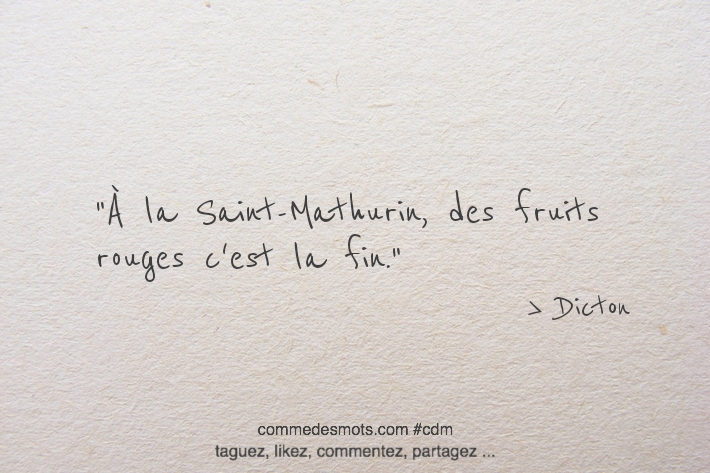 "À la Saint-Mathurin, des fruits
rouges c'est la fin."
> Dicton
commedesmots.com #cdm
taguez, likez, commentez, partagez ...